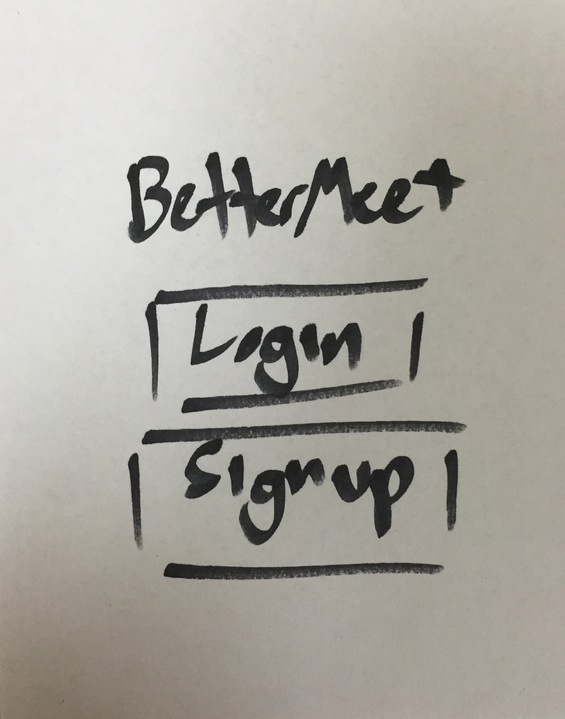 BetterMeet
Login
Signup